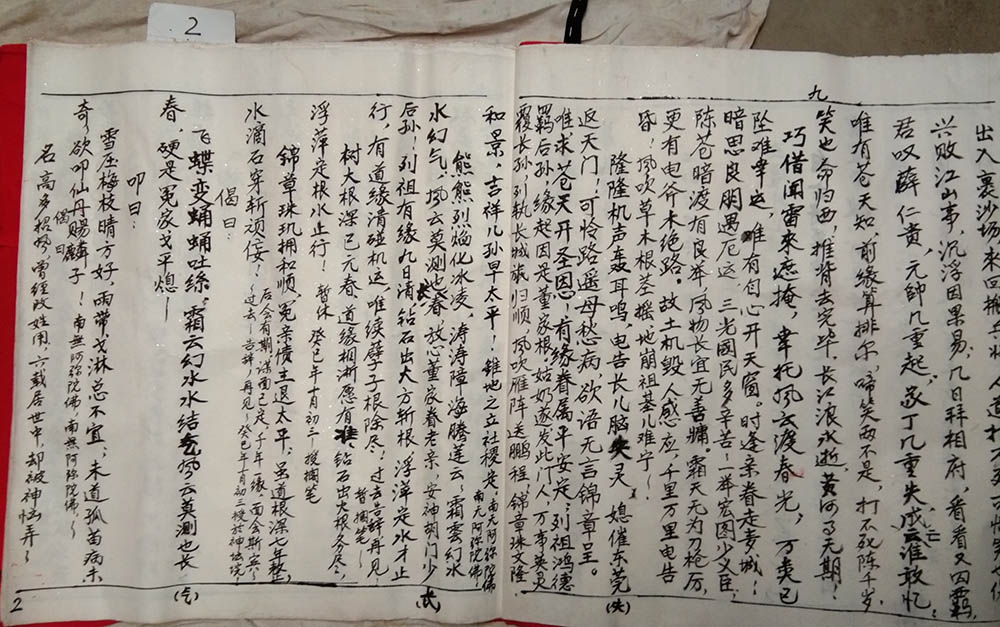 2
九
出入裹沙场来回搬
兴败江山事,沉浮因果易,几日拜相府,看看又囚羁,
君叹薛仁贵,元帅几重起,家丁几重失,谁敢忆
唯有苍天知,前缘算排尔,啼笑两不是,打不死陈千岁,
笑也命归西,推背去完毕,长江浪水逝,黄河了无期!
巧借闻雷来遮掩,幸托风云渡春光,万类已
坠难幸运,唯有自心开天窗。时逢亲眷走麦城,
暗思良朋遇厄运,三光国民多辛苦!一举宏图少义臣,
陈苍暗渡有良举,风物长宜无善啸。霜天无为刀枪厉,
更有电斧木绝路。故土机毁人感应,千里万里电告
昏,风吹草木根茎摇,地崩祖基儿难宁~
隆隆机声轰耳鸣,电告长儿脑失灵,媳催东莞
返天门,可怜路遥母愁病,欲语无言锦章呈。
唯求苍天开圣因!有缘眷属平安定,列祖鸿德
羁后孙,缘起因是董家根,姑奶遂发此门人,万事英灵
覆长孙,列执长城淑归顺,风吹雁阵送鹏程,锦章珠文隆
(失)
和景。吉祥儿孙早太平!锥地之立社稷定。南无阿弥陀佛 南无阿弥陀佛
熊熊烈焰化冰凌,涛涛障海腾莲云,霜云幻水
水幻气,风云莫测也长春,放心董家眷老亲,安神胡门少
后孙!列祖有缘九日清,钻石出大方斩根,浮萍定水才止
行,有道缘清碰机运,唯续孽子根除尽,过去告辞,再见 暂搁笔~
树大根深已元春,道缘桐渐愿有准,钻石出火根务尽,
浮萍定根水止行! 暂休 癸巳年十月初三 搜搁笔
锦章珠玑拥和顺,冤亲债主退太平,虽道根深七年整,
水滴石穿斩顽佞! 后会有期,谋面已定,千年一缘,一面会斯云~ ~过去~告辞,再见~癸巳年十月初三
偈曰:
飞蝶变蛹蛹吐丝,霜云幻水水结气,风云莫测也长
春,硬是冤家戈平熄~
(气)
叩曰:
雪压梅枝晴方好,雨带戈淋总不宜,未道孤苗病未
奇,欲叩仙丹赐麟子!南无阿弥陀佛,南无阿弥陀佛~
偈曰:
名高多招风,曾经改姓用,六载居世中,却被神恼弄~
2